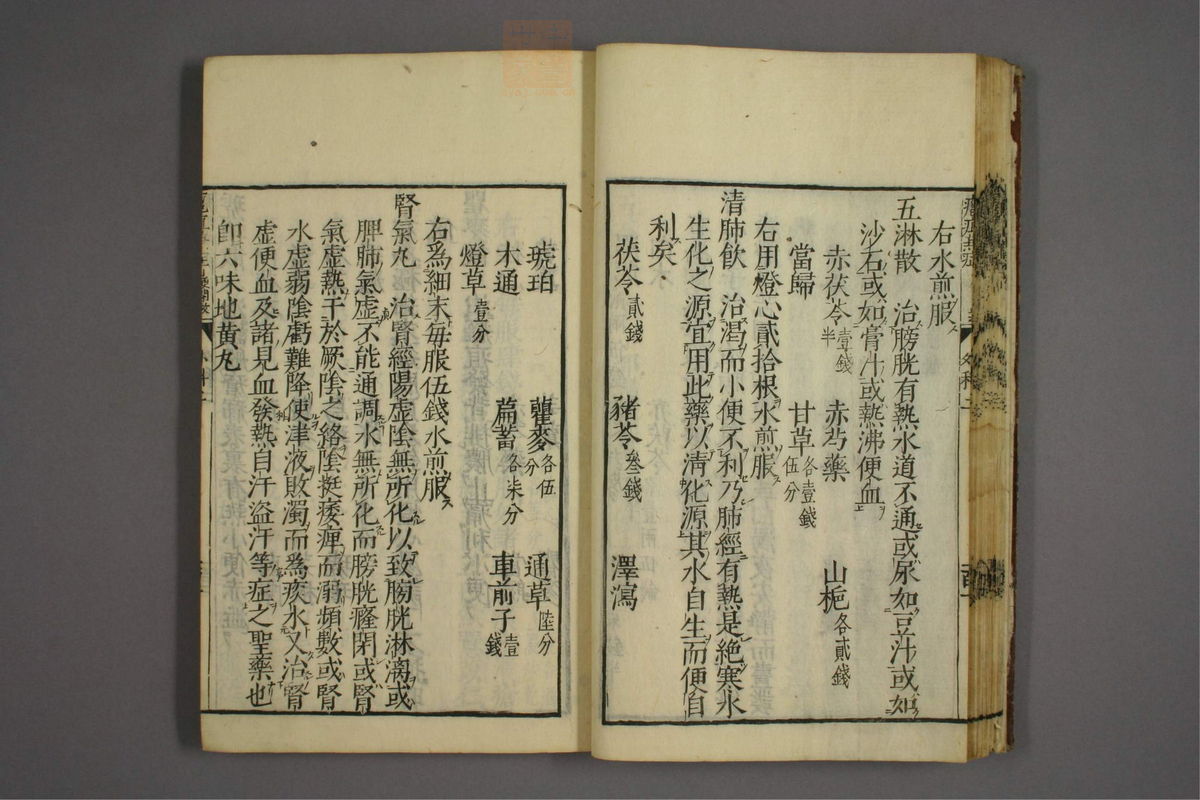 右水煎服
五淋散 治膀胱有熱水道不通或尿如豆汁或如
沙石或如膏汁或熱沸便血
赤茯苓壹錢半 赤芍藥 山梔各貳錢
當歸 甘草各壹錢伍分
右用燈心貳拾根水煎服
清肺飲 治渴而小便不利乃肺經有熱是絶寒水
生化之源宜用此藥以淸化源其水自生而便自
利矣
茯苓貳錢 豬苓叄錢 澤瀉
琥珀 瞿麥各伍分 通草陸分
木通 萹蓄各柒分 車前子壹錢
燈草壹分
右爲細末每服伍錢水煎服
腎氣丸 治腎經陽虛陰無所化以致膀胱淋漓或
脾肺氣虛不能通調水無所化而膀胱癃閉或腎
氣虛熱干於厥陰之絡陰挺痿痺而溺頻數或腎
水虛弱陰虧難降使津液敗濁而爲痰水又治腎
虛便血及諸見血發熱自汗盜汗等症之聖藥也
卽六味地黃丸